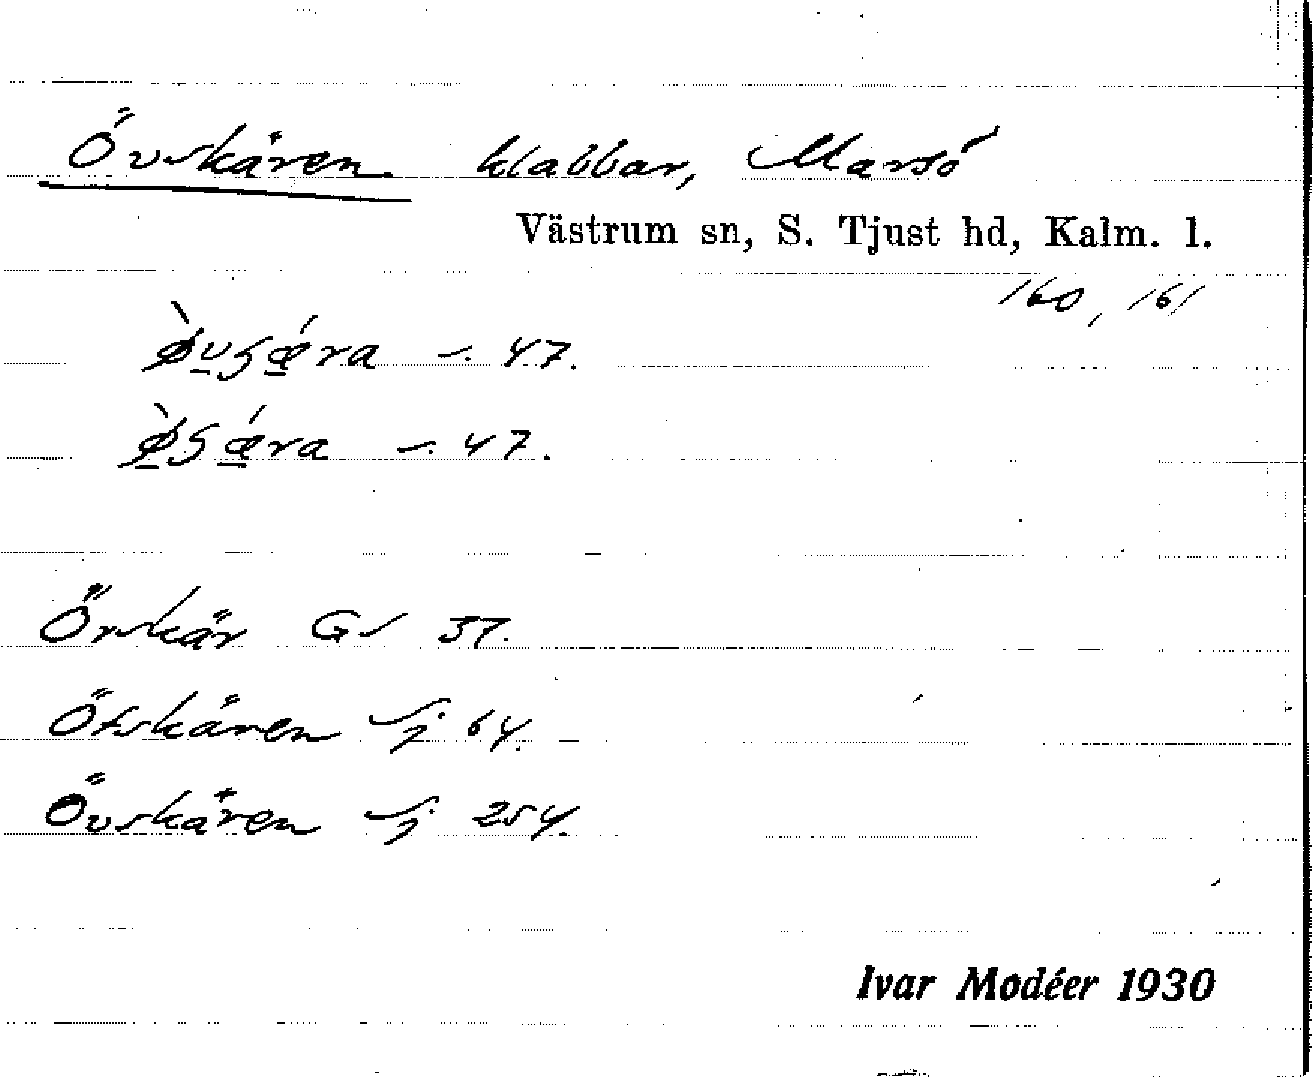 Övskären klabbar, Marsö
Västrum sn, S. Tjust hd, Kalm. l.
160, 161
47.
47.
Örskär Gs 37.
Öfskären Sj 64.
Övskären Sj 254.
Ivar Modéer 1930